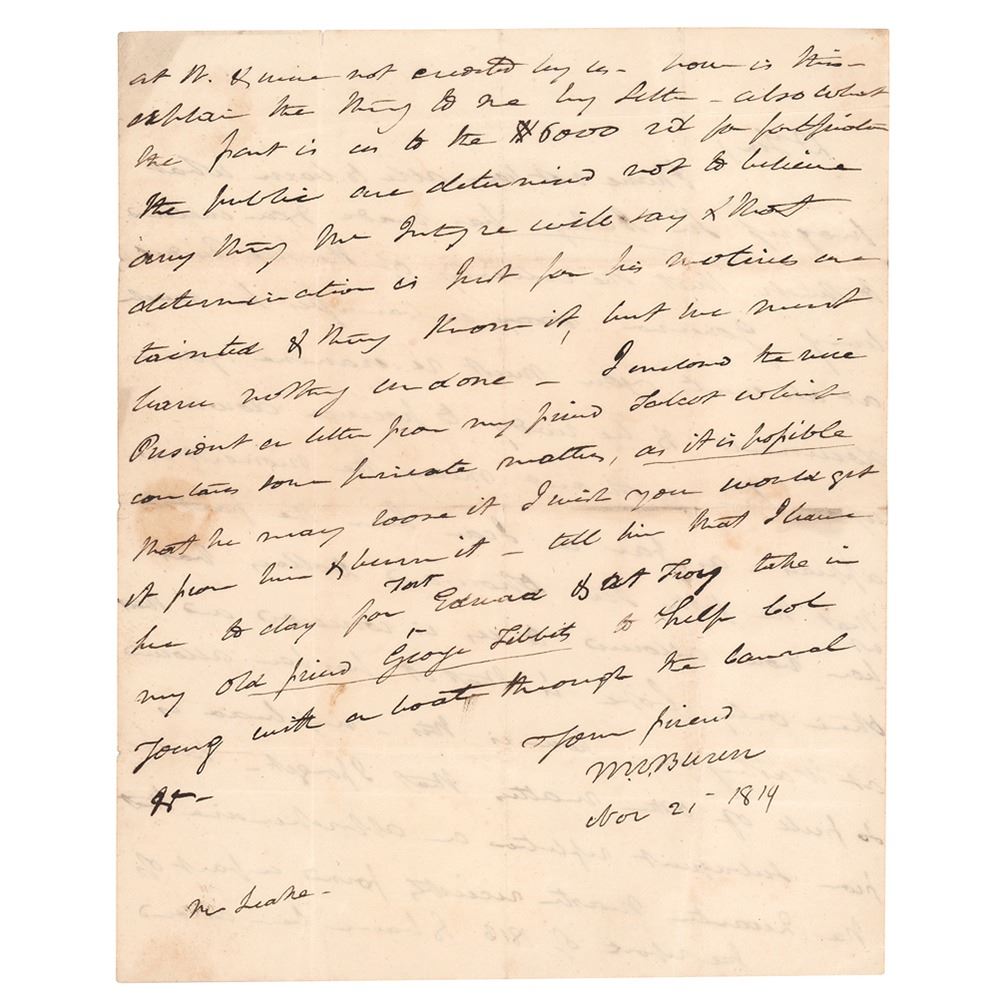 at N. & were not credited by us - how is this -
explain the thing to me by letter - also what
the fact is as to the $6000 rd for fortification
the public are determined not to believe
any thing Mc Intyre will say & that
determination is just for his motives are
tainted & they know it, but we must
leave nothing undone - I enclosed the vice
President a letter from my friend Talcot which
contains some private matters, as it is possible
that he may loose it I wish you would get
it from him & burn it - tell him that I leave
here to day for Fort Edward & at Troy take in
my old friend George Tibbits to help Col
Young with a boat through the cannal
&c -
Your friend
M.V.Buren
Nov 21 1819
Mr Leake -